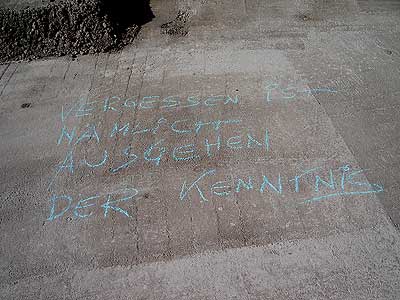 VERGESSEN IST
NÄMLICH
AUSGEHEN
DER KENNTNIS